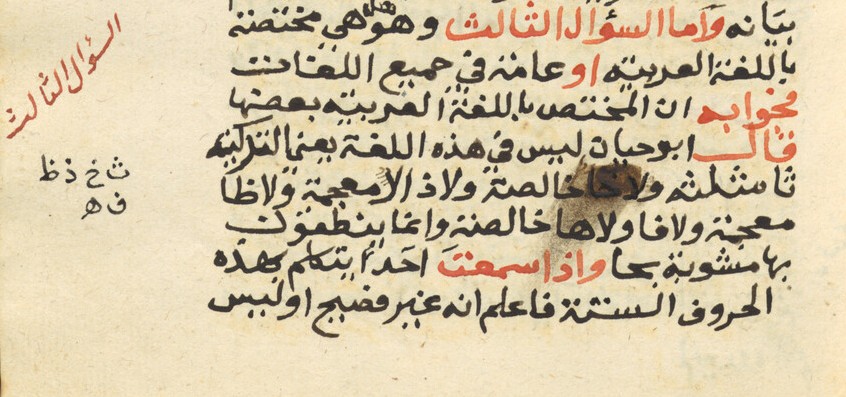 بيانه واما السؤال الثالث وهو هل هي مختصة
باللغة العربيه او عامة في جميع اللغات
فجوابه ان المختص باللغة العربيه بعضها
قال ابو حيان ليس في هذه اللغة يعنى التركيه
ثا مثلثه ولا خا خالصة ولا ذ الا معجمة ولا ظا
معجمة ولا فا ولا ها خالصة وانما ينطقون
بها مشوبة بحا واذا سمعت احدا يتكلم بهذه
الحروف الستة فاعلم انه غير فصيح او ليس
السؤال الثالث
ث خ ذ ظ
ف ه